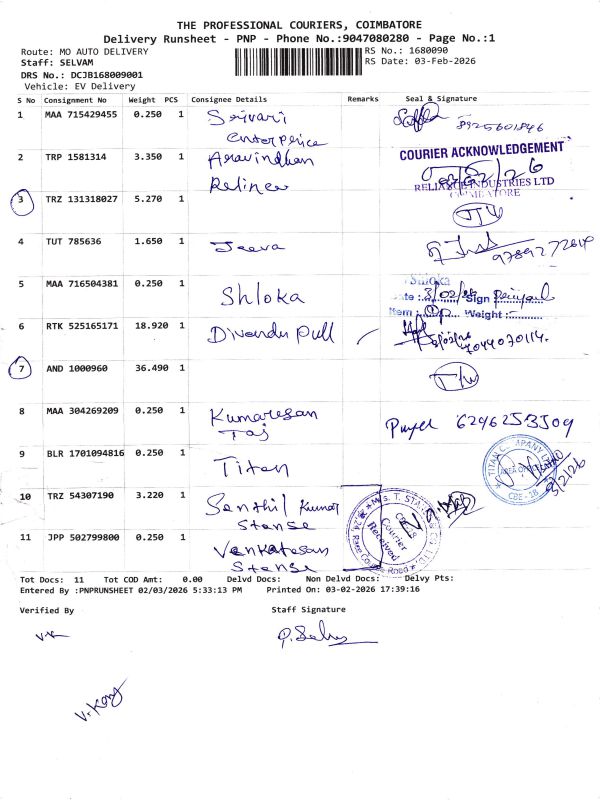 THE PROFESSIONAL COURIERS, COIMBATORE
Delivery Runsheet - PNP - Phone No.:9047080280 - Page No.:1
Route: MO AUTO DELIVERY
RS No.: 1680090
Staff: SELVAM
RS Date: 03-Feb-2026
DRS No.: DCJB168009001
Vehicle: EV Delivery
S No Consignment No Weight PCS Consignee Details Remarks Seal & Signature
1 MAA 715429455 0.250 1 Srivari
enterprice
8925601846
2 TRP 1581314 3.350 1 Aravindhan
Reliner
COURIER ACKNOWLEDGEMENT
RELIANCE INDUSTRIES LTD
COIMBATORE
3 TRZ 131318027 5.270 1
4 TUT 785636 1.650 1 Jeeva
5 MAA 716504381 0.250 1 Shloka
Shloka
Date : 3/02/26 Sign
Item : Weight:
6 RTK 525165171 18.920 1 Divendu Pull
7044070114.
7 AND 1000960 36.490 1
8 MAA 304269209 0.250 1 Kumaresan
Taj
6296253509
9 BLR 1701094816 0.250 1 Titan
TITAN COMPANY LTD
CBE - 18
3/2/26
10 TRZ 54307190 3.220 1 Senthil Kumar
Stanse
Courier
Received
11 JPP 502799800 0.250 1 Venkatesan
Stanse
Tot Docs: 11 Tot COD Amt: 0.00 Delvd Docs: Non Delvd Docs: Delvy Pts:
Entered By :PNPRUNSHEET 02/03/2026 5:33:13 PM Printed On: 03-02-2026 17:39:16
Verified By Staff Signature